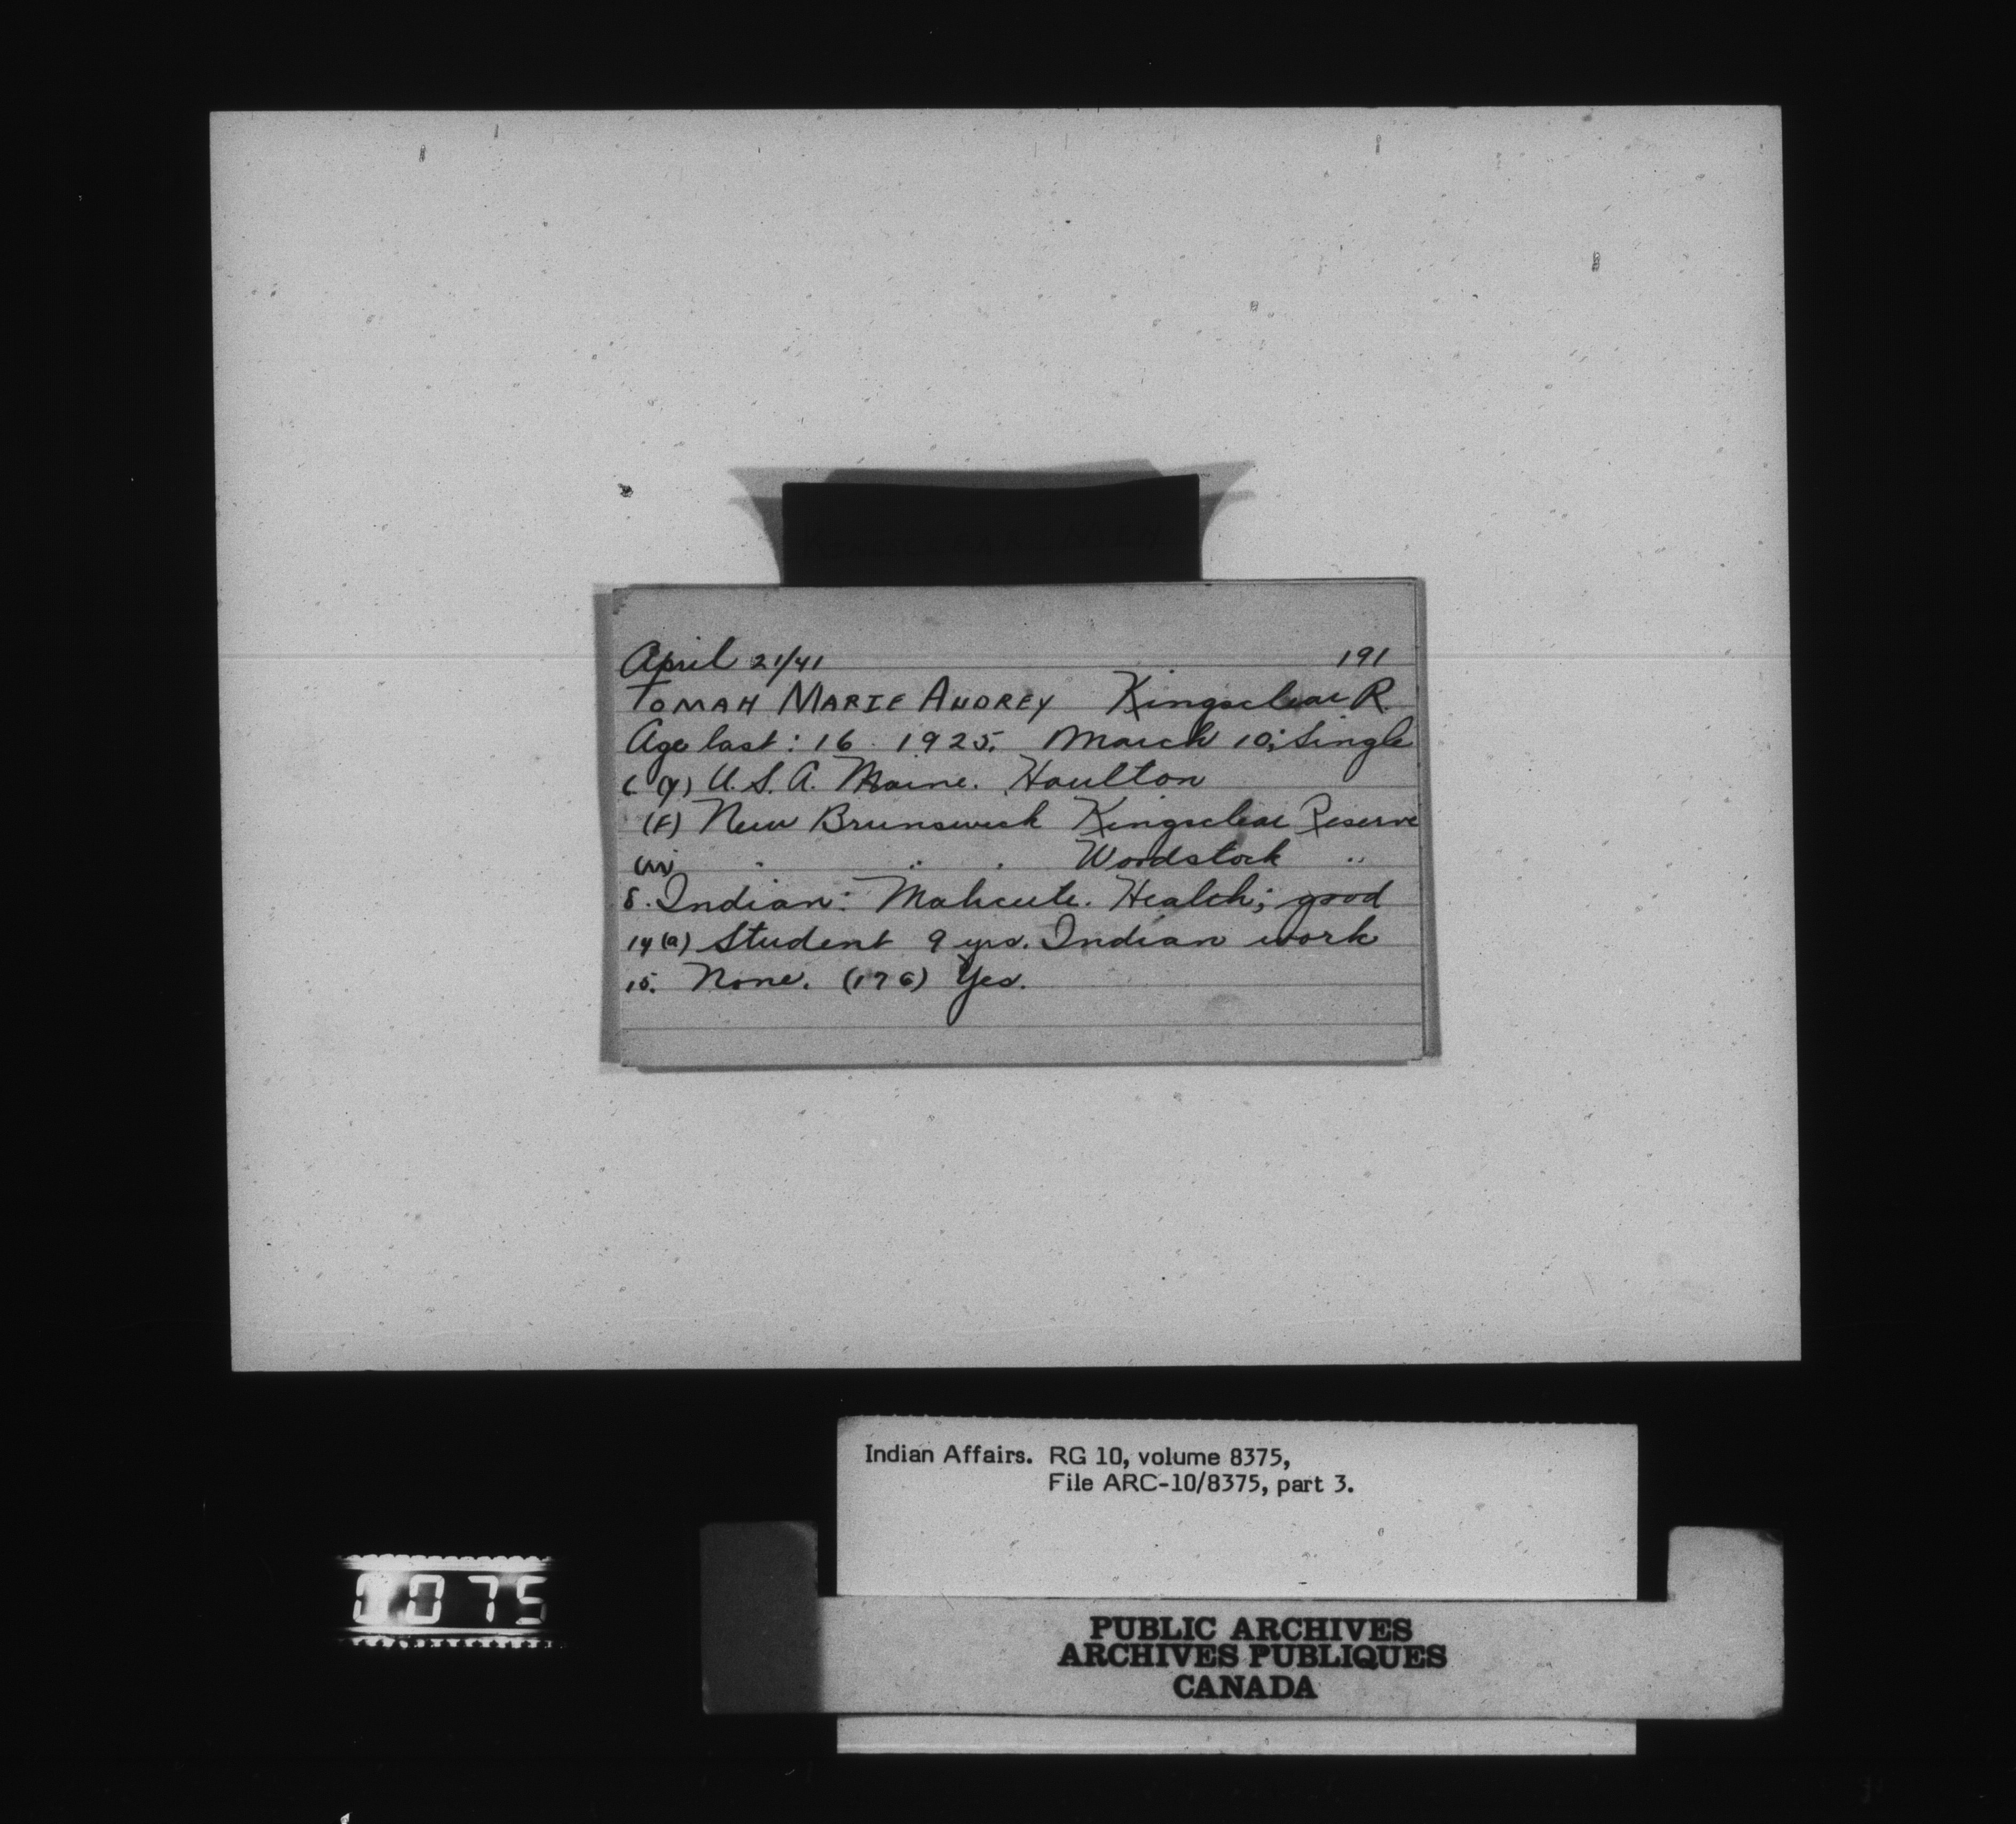 April 21/41 191
TOMAH MARIE AUDREY Kingsclear R.
Age last: 16. 1925. March 10; Single
6 (Y) U.S.A. Maine. Houlton
(F) New Brunswick Kingsclear Reserve
(M) " " " Woodstock "
8. Indian: Malicete. Health; good
14(a) Student 9 yrs. Indian work
15. None. (176) Yes.
Indian Affairs. RG 10, volume 8375,
File ARC-10/8375, part 3.
0075
PUBLIC ARCHIVES
ARCHIVES PUBLIQUES
CANADA